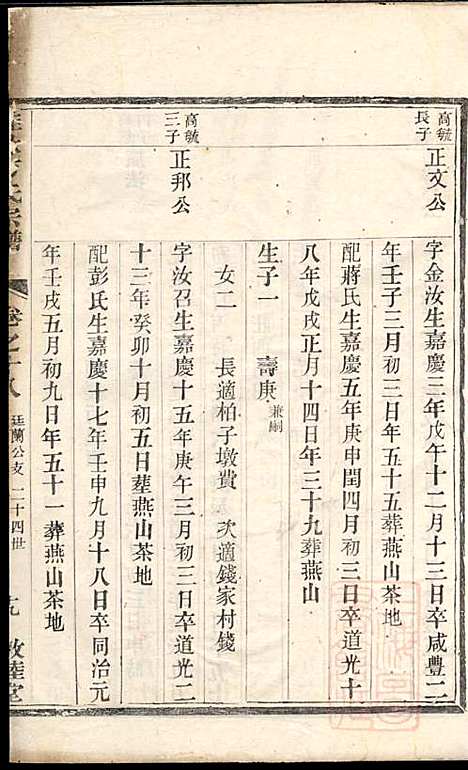 高毓
長子
正文公
字金汝生嘉慶三年戊午十二月十三日卒咸豐二
年壬子三月初三日年五十五葬燕山茶地
配蔣氏生嘉慶五年庚申閏四月初三日卒道光十
八年戊戌正月十四日年三十九葬燕山
生子一 壽庚兼嗣
女二 長適柏子墩費 次適錢家村錢
高毓
三子
正邦公
字汝召生嘉慶十五年庚午三月初三日卒道光二
十三年癸卯十月初五日塟燕山茶地
配彭氏生嘉慶十七年壬申九月十八日卒同治元
年壬戌五月初九日年五十一葬燕山茶地
氏宗譜
卷之十八
廷蘭公支 二十四世
敦睦堂